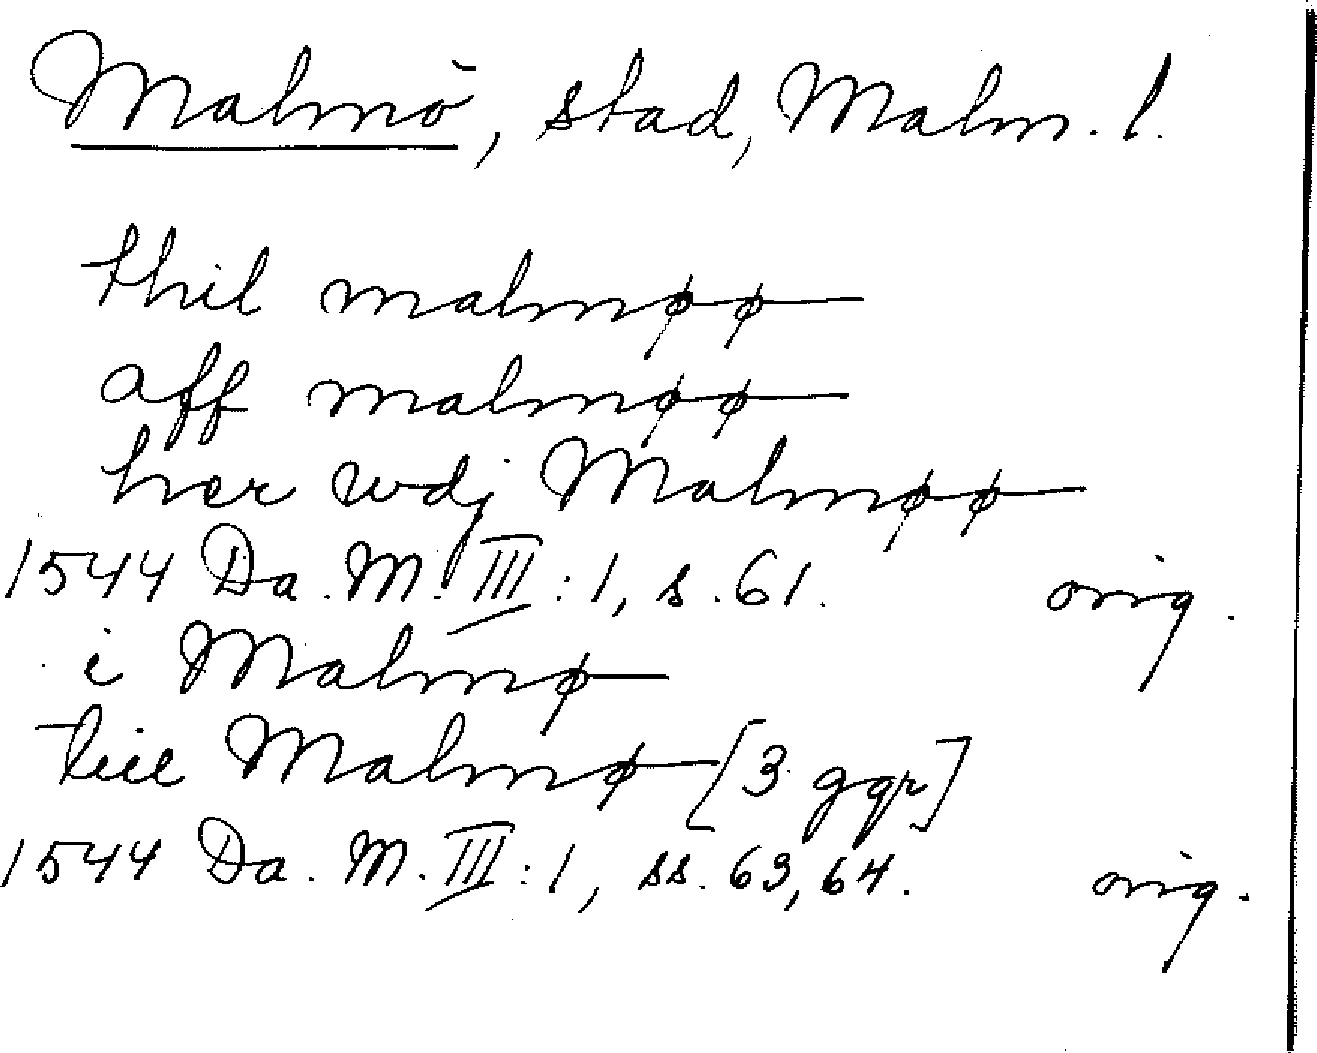 Malmö, stad, Malm. l.
thil malmøø
aff malmøø
her wdj Malmøø
1544 Da. M. III:1, s. 61. orig.
i Malmø
tiil Malmø [3 ggr]
1544 Da. M. III:1, ss. 63, 64. orig.